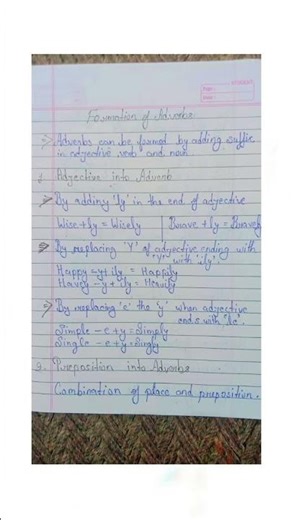 Formation of Adverbs
=> Adverbs can be formed by adding suffix
in adjective, verb and noun
1. Adjective into Adverb
=> By adding 'ly' in the end of adjective
Wise + ly = Wisely | Brave + ly = Bravely
=> By replacing 'Y' of adjective ending with
"y" with 'ily'.
Happy - y + ily = Happily
Heavy - y + ily = Heavily
=> By replacing 'e' the 'y' when adjective
ends with 'le'.
Simple - e + y = Simply
Single - e + y = Singly
2. Preposition into Adverbs
Combination of place and preposition.